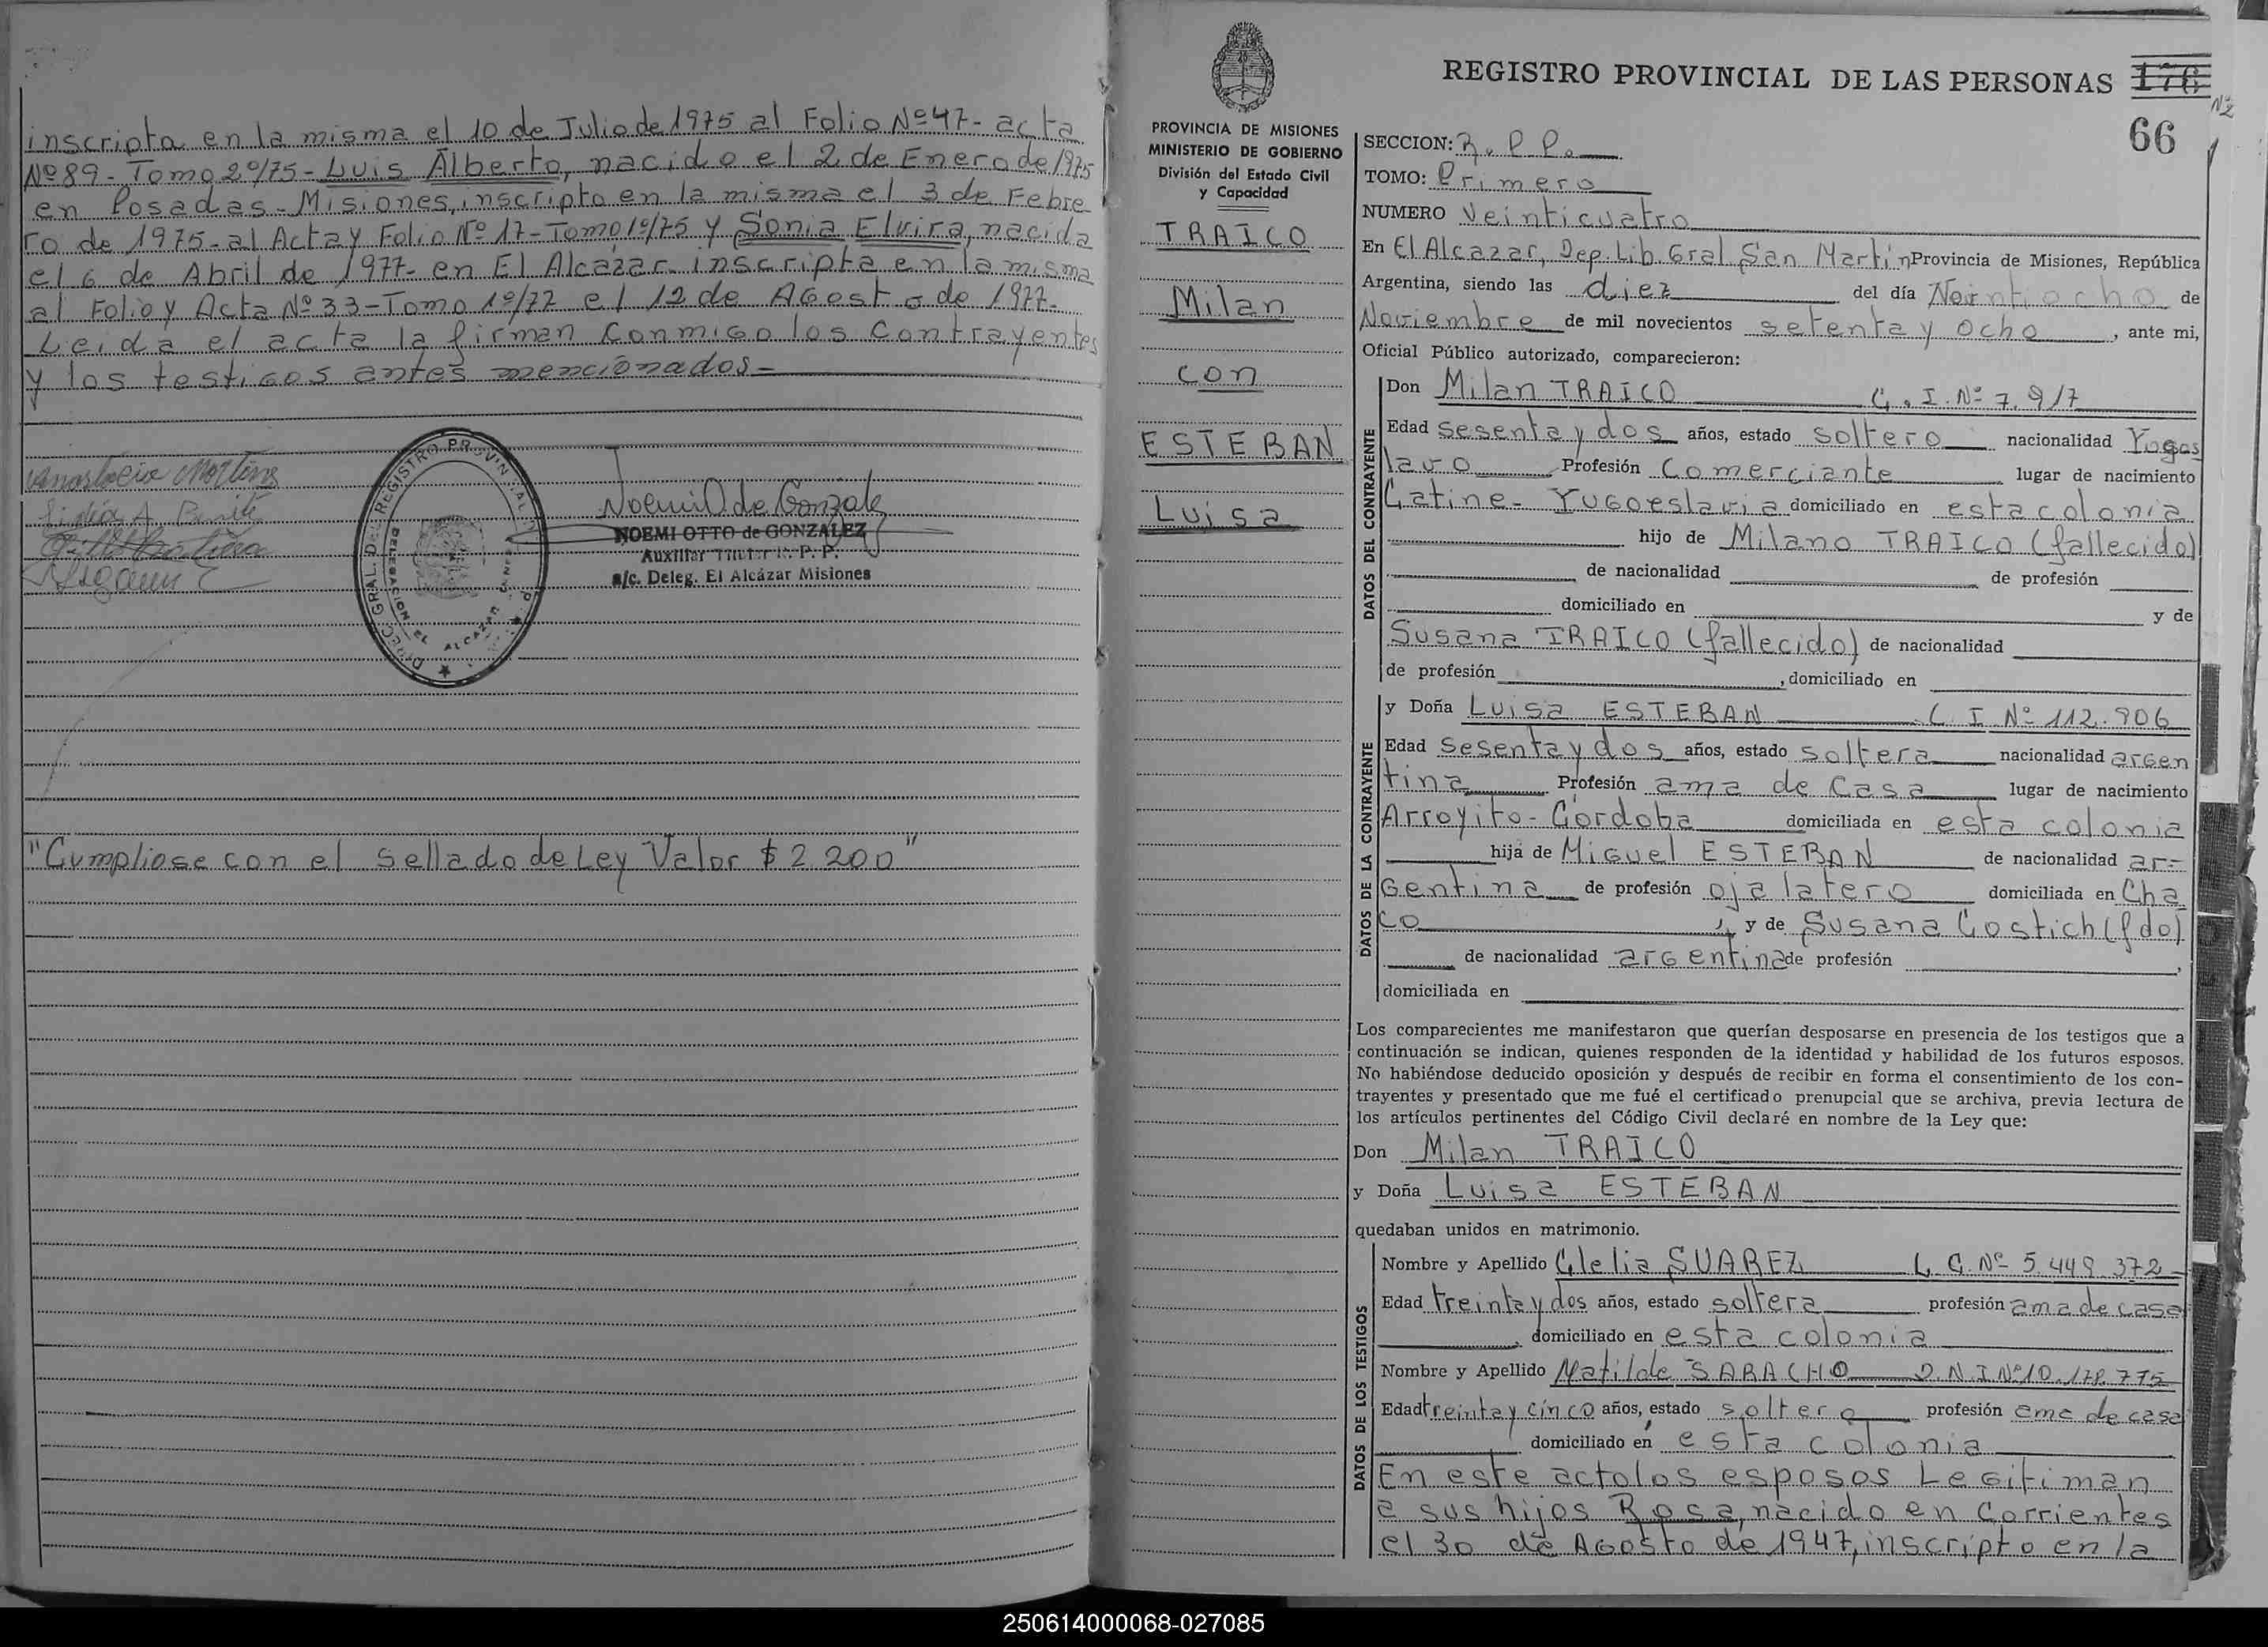 inscripta en la misma el 10 de Julio de 1975 al Folio Nº 47- acta
Nº 89- Tomo 2º/75- Luis Alberto, nacido el 2 de Enero de 1975
en Posadas- Misiones, inscripto en la misma el 3 de Febre-
ro de 1975- al Acta y Folio Nº 17- Tomo 1º/75 y Sonia Elvira, nacida
el 6 de Abril de 1977- en El Alcázar- inscripta en la misma
al Folio y Acta Nº 33- Tomo 1º/77 el 12 de Agosto de 1977-
Leida el acta la firman conmigo los contrayentes
y los testigos antes mencionados-
DIREC. GRAL. DEL REGISTRO PROVINCIAL
DELEGACION EL ALCAZAR
NOEMI OTTO de GONZALEZ
Auxiliar Titular R. P. P.
a/c. Deleg. El Alcázar Misiones
"Cumpliose con el sellado de Ley Valor $ 2.200"
REGISTRO PROVINCIAL DE LAS PERSONAS 176
Nº 2
66
PROVINCIA DE MISIONES
MINISTERIO DE GOBIERNO
División del Estado Civil
y Capacidad
TRAICO
Milan
con
ESTEBAN
Luisa
SECCION: R. P P.
TOMO: Primero
NUMERO Veinticuatro
En El Alcazar, Dep. Lib. Gral San Martin Provincia de Misiones, República
Argentina, siendo las diez del día Veintiocho de
Noviembre de mil novecientos setenta y ocho, ante mi,
Oficial Público autorizado, comparecieron:
DATOS DEL CONTRAYENTE
Don Milan TRAICO C. I. Nº 7.917
Edad sesenta y dos años, estado soltero nacionalidad Yugos
lavo Profesión Comerciante lugar de nacimiento
Catine- Yugoeslavia domiciliado en esta colonia
hijo de Milano TRAICO (fallecido)
de nacionalidad de profesión
domiciliado en y de
Susana TRAICO (fallecido) de nacionalidad
de profesión , domiciliado en
DATOS DE LA CONTRAYENTE
y Doña Luisa ESTEBAN C. I Nº 112.906
Edad Sesenta y dos años, estado soltera nacionalidad argen
tina Profesión ama de casa lugar de nacimiento
Arroyito- Córdoba domiciliada en esta colonia
hija de Miguel ESTEBAN de nacionalidad ar-
gentina de profesión ojalatero domiciliada en Cha
co , y de Susana Costich (fdo)
de nacionalidad argentina de profesión ,
domiciliada en
Los comparecientes me manifestaron que querían desposarse en presencia de los testigos que a
continuación se indican, quienes responden de la identidad y habilidad de los futuros esposos.
No habiéndose deducido oposición y después de recibir en forma el consentimiento de los con-
trayentes y presentado que me fué el certificado prenupcial que se archiva, previa lectura de
los artículos pertinentes del Código Civil declaré en nombre de la Ley que:
Don Milan TRAICO
y Doña Luisa ESTEBAN
quedaban unidos en matrimonio.
DATOS DE LOS TESTIGOS
Nombre y Apellido Clelia SUAREZ L. C. Nº 5.449.372
Edad treinta y dos años, estado soltera profesión ama de casa
, domiciliado en esta colonia
Nombre y Apellido Matilde SARACHO D. N. I. Nº 10.178.775
Edad treinta y cinco años, estado soltera profesión ama de casa
domiciliado en esta colonia
En este acto los esposos Legitiman
a sus hijos Rosa, nacido en Corrientes
el 30 de Agosto de 1947, inscripto en la
250614000068-027085